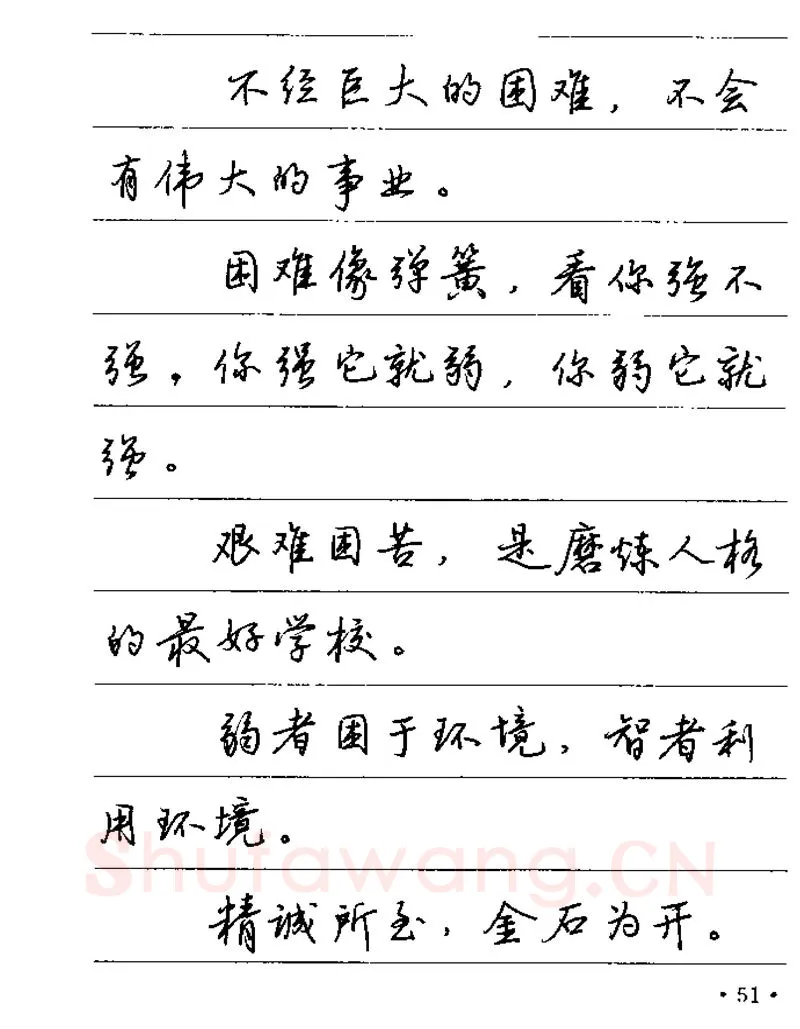 不经巨大的困难，不会
有伟大的事业。
困难像弹簧，看你强不
强，你强它就弱，你弱它就
强。
艰难困苦，是磨炼人格
的最好学校。
弱者困于环境，智者利
用环境。
Shufawang.CN
精诚所至，金石为开。
·51·